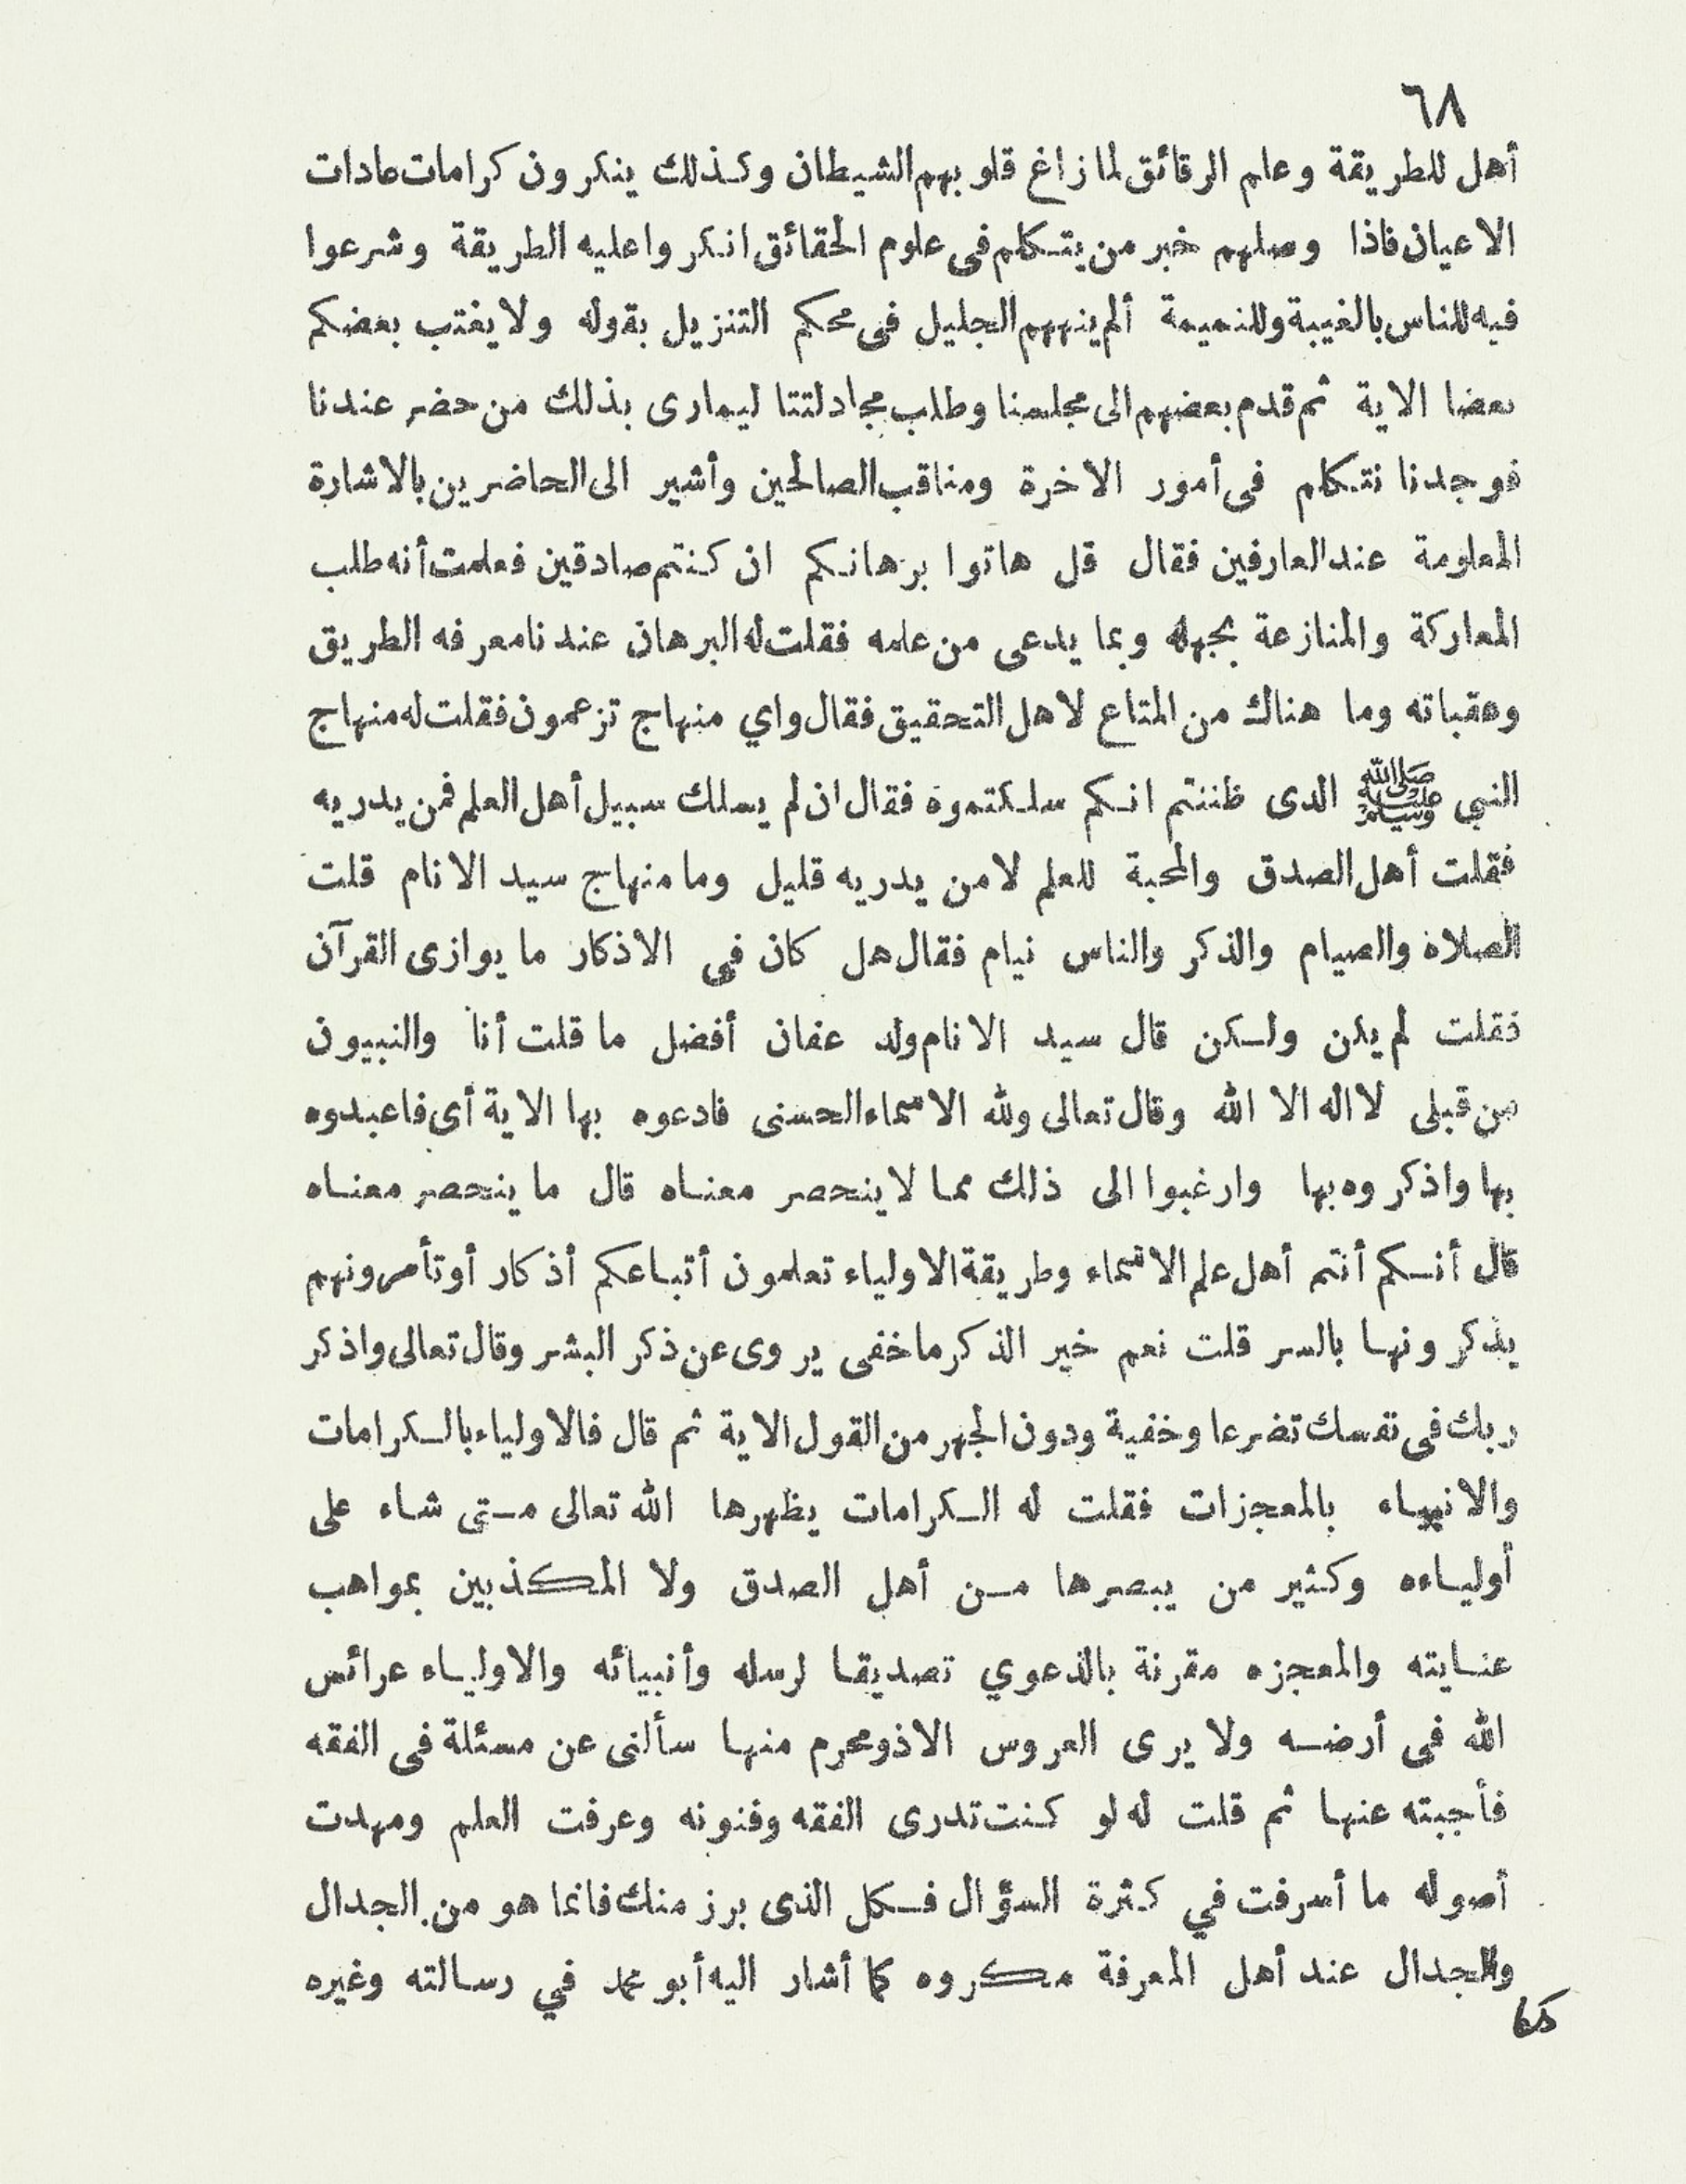 ٦٨
أهل للطريقة وعلم الرقائق لما زاغ قلوبهم الشيطان وكذلك ينكرون كرامات عادات
الاعيان فاذا وصلهم خبر من يتكلم فى علوم الحقائق انكروا عليه الطريقة وشرعوا
فيه للناس بالغيبة وللنميمة ألم ينههم الجليل فى محكم التنزيل بقوله ولا يغتب بعضكم
بعضا الاية ثم قدم بعضهم الى مجلسنا وطلب مجادلتنا ليمارى بذلك من حضر عندنا
فوجدنا نتكلم فى أمور الاخرة ومناقب الصالحين وأشير الى الحاضرين بالاشارة
المعلومة عند العارفين فقال قل هاتوا برهانكم ان كنتم صادقين فعلمت أنه طلب
المعاركة والمنازعة بجهله وبما يدعى من علمه فقلت له البرهان عندنا معرفه الطريق
وعقباته وما هناك من المتاع لاهل التحقيق فقال واي منهاج تزعمون فقلت له منهاج
النبي ﷺ الدى ظننتم انكم سلكتموة فقال ان لم يسلك سبيل أهل العلم فمن يدريه
فقلت أهل الصدق والمحبة للعلم لامن يدريه قليل وما منهاج سيد الانام قلت
الصلاة والصيام والذكر والناس نيام فقال هل كان فى الاذكار ما يوازى القرآن
فقلت لم يكن ولكن قال سيد الانام ولد عفان أفضل ما قلت أنا والنبيون
من قبلى لا اله الا الله وقال تعالى ولله الاسماء الحسنى فادعوه بها الاية أى فاعبدوه
بها واذكروه بها وارغبوا الى ذلك مما لا ينحصر معناه قال ما ينحصر معناه
قال أنكم أنتم أهل علم الاسماء وطريقة الاولياء تعلمون أتباعكم أذكار أو تأمرونهم
يذكرونها بالسر قلت نعم خير الذكر ما خفى يروى عن ذكر البشر وقال تعالى واذكر
ربك فى نفسك تضرعا وخفية ودون الجهر من القول الاية ثم قال فالاولياء بالكرامات
والانبياء بالمعجزات فقلت له الكرامات يظهرها الله تعالى متى شاء على
أولياءه وكثير من يبصرها من أهل الصدق ولا المكذبين بمواهب
عنايته والمعجزه مقرنة بالدعوي تصديقا لرسله وأنبيائه والاولياء عرائس
الله فى أرضه ولا يرى العروس الاذو محرم منها سألنى عن مسئلة فى الفقه
فأجبته عنها ثم قلت له لو كنت تدرى الفقه وفنونه وعرفت العلم ومهدت
أصوله ما أسرفت في كثرة السؤال فكل الذى برز منك فانما هو من الجدال
والجدال عند أهل المعرفة مكروه كما أشار اليه أبو محمد في رسالته وغيره